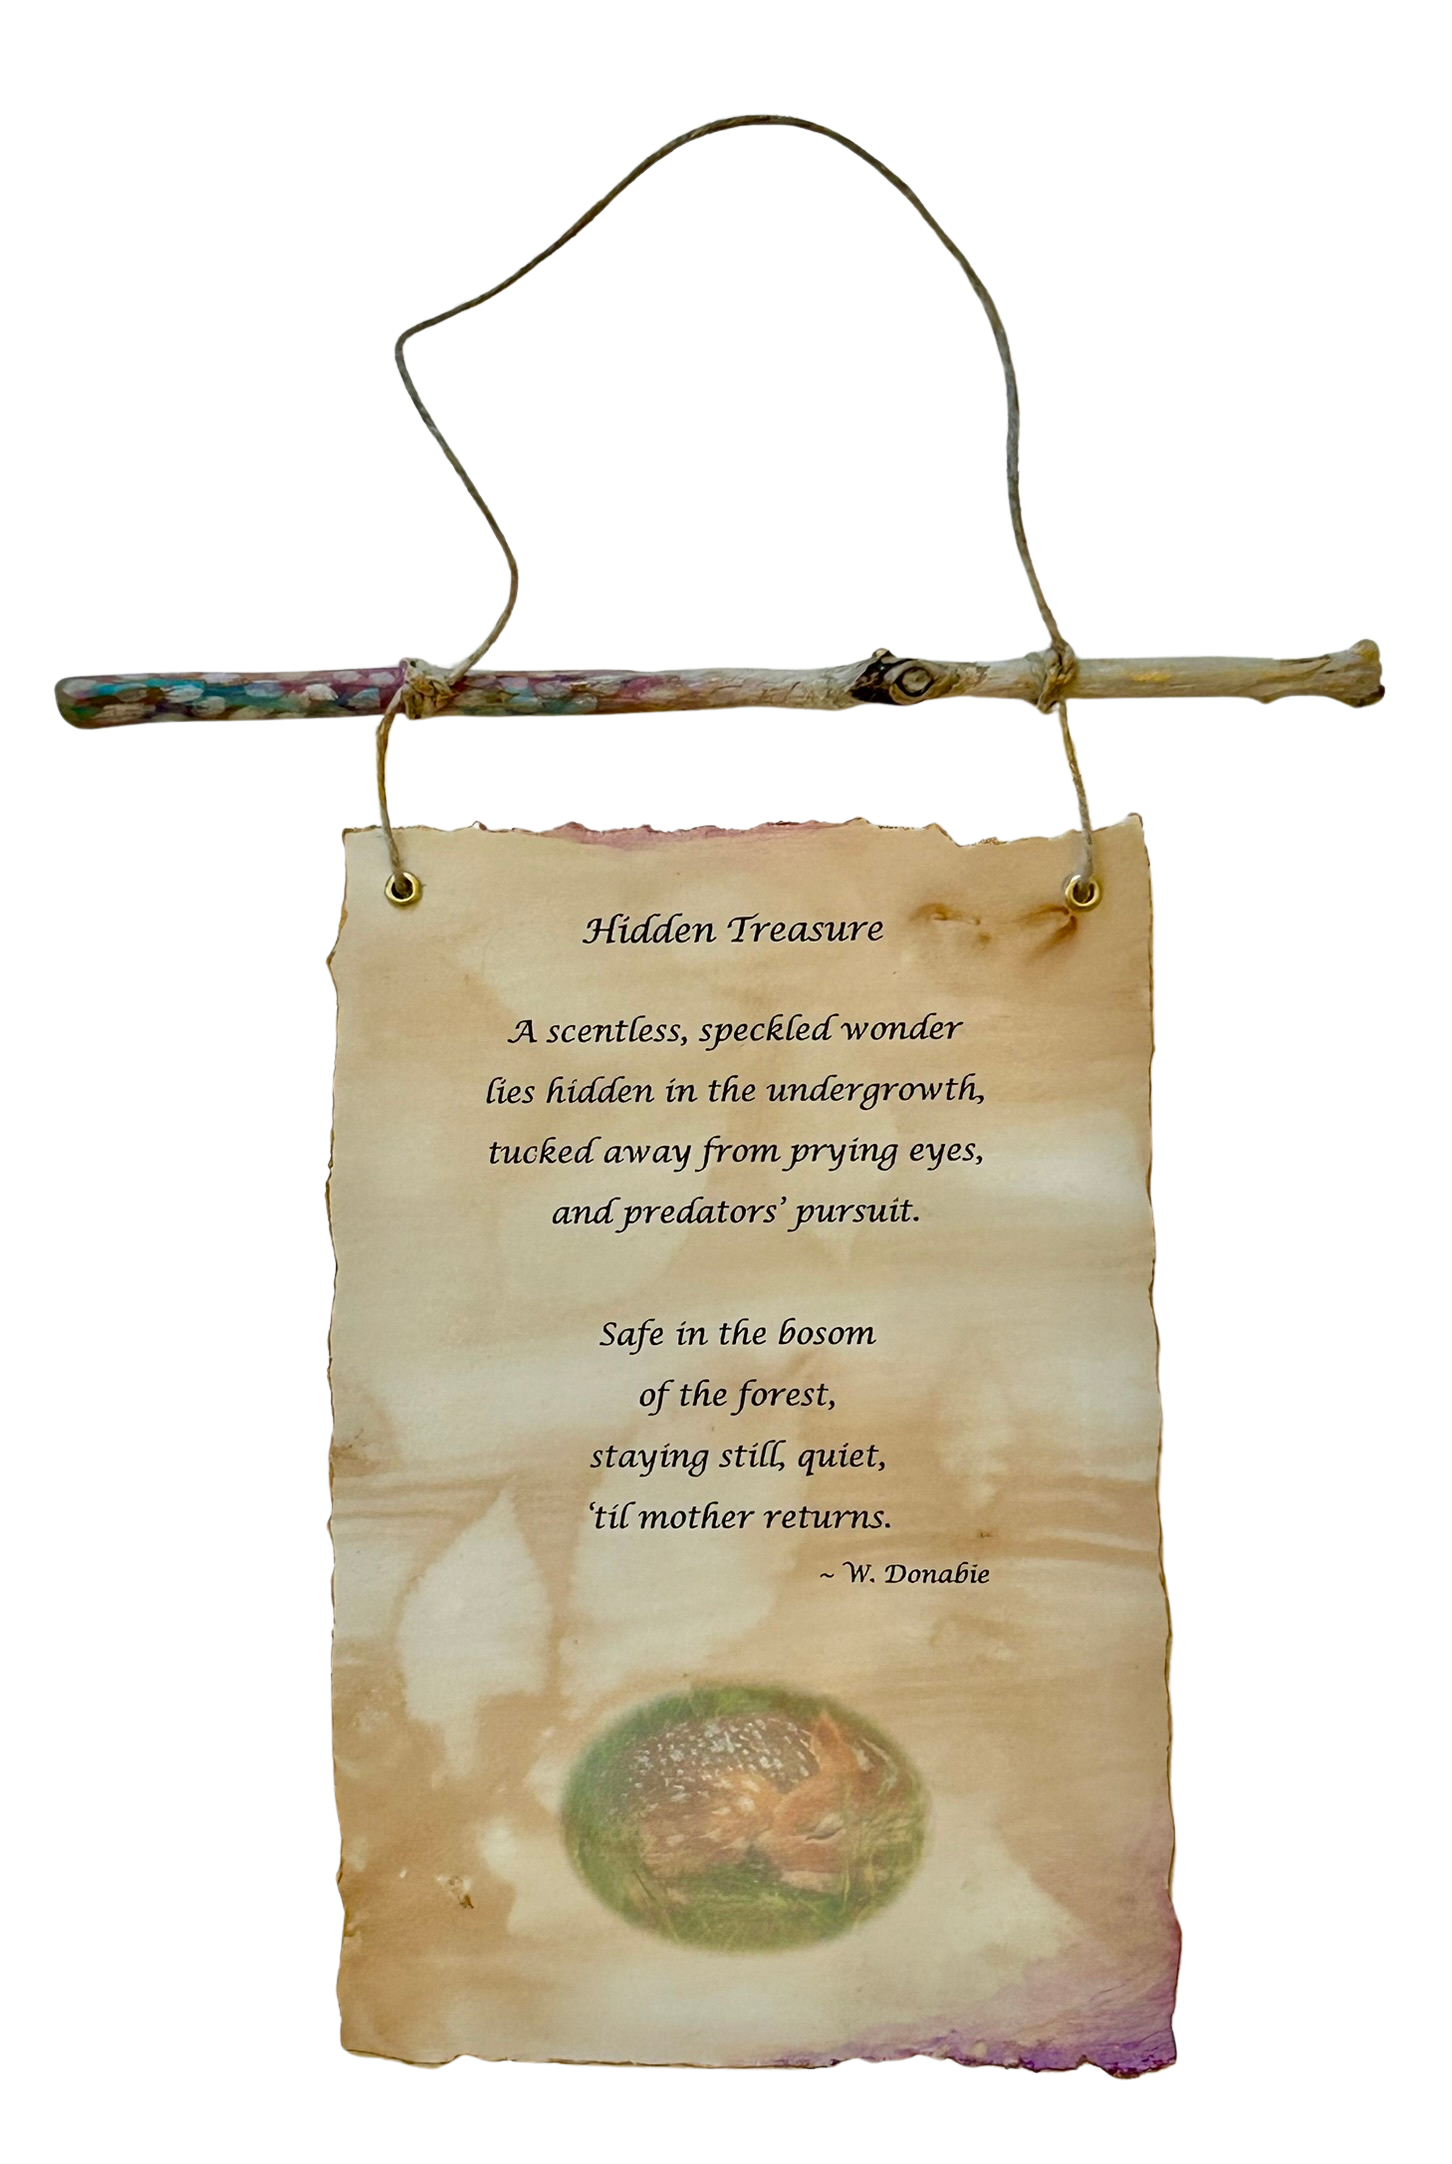 Hidden Treasure
A scentless, speckled wonder
lies hidden in the undergrowth,
tucked away from prying eyes,
and predators’ pursuit.
Safe in the bosom
of the forest,
staying still, quiet,
‘til mother returns.
~ W. Donabie